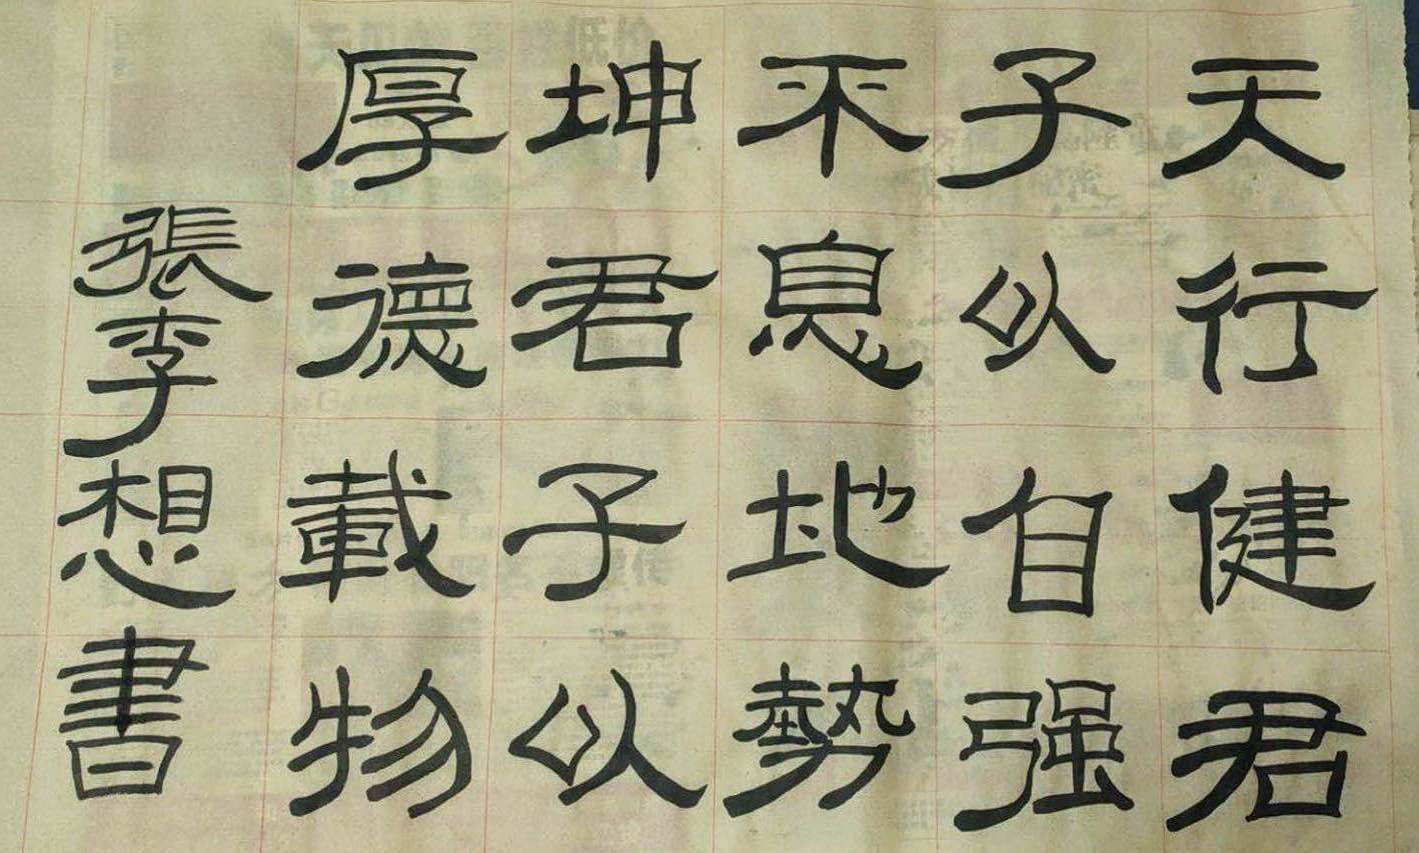 天行健君
子以自强
不息地勢
坤君子以
厚德載物
張李想書